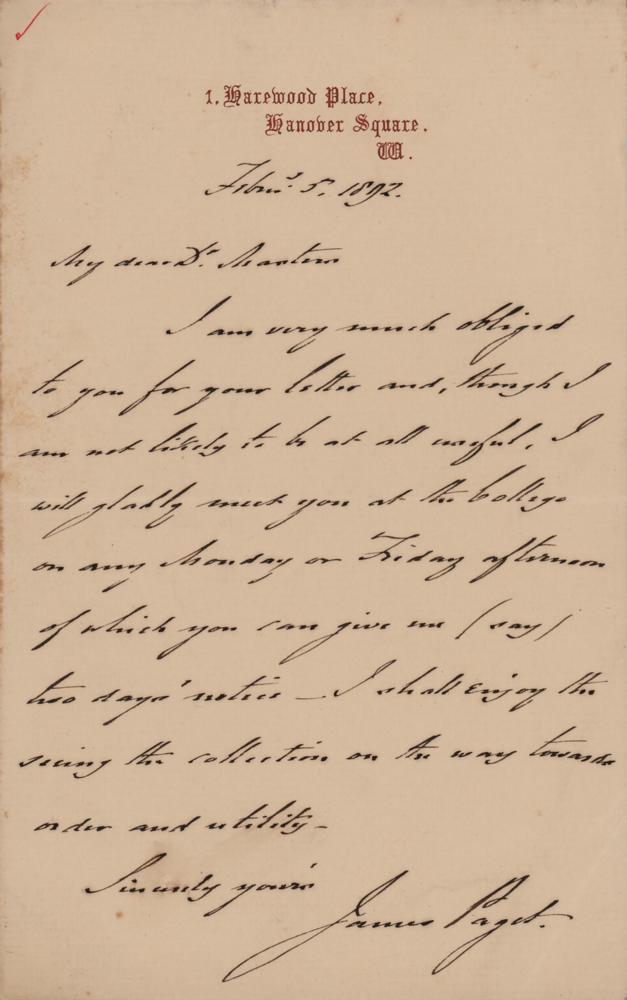 1, Harewood Place,
Hanover Square.
W.
Febry. 5. 1892.
My dear Dr. Masters
I am very much obliged
to you for your letter and, though I
am not likely to be at all useful, I
will gladly meet you at the College
on any Monday or Friday afternoon
of which you can give me (say)
two days' notice — I shall enjoy the
seeing the collection on the way towards
order and utility—
Sincerely yours
James Paget.